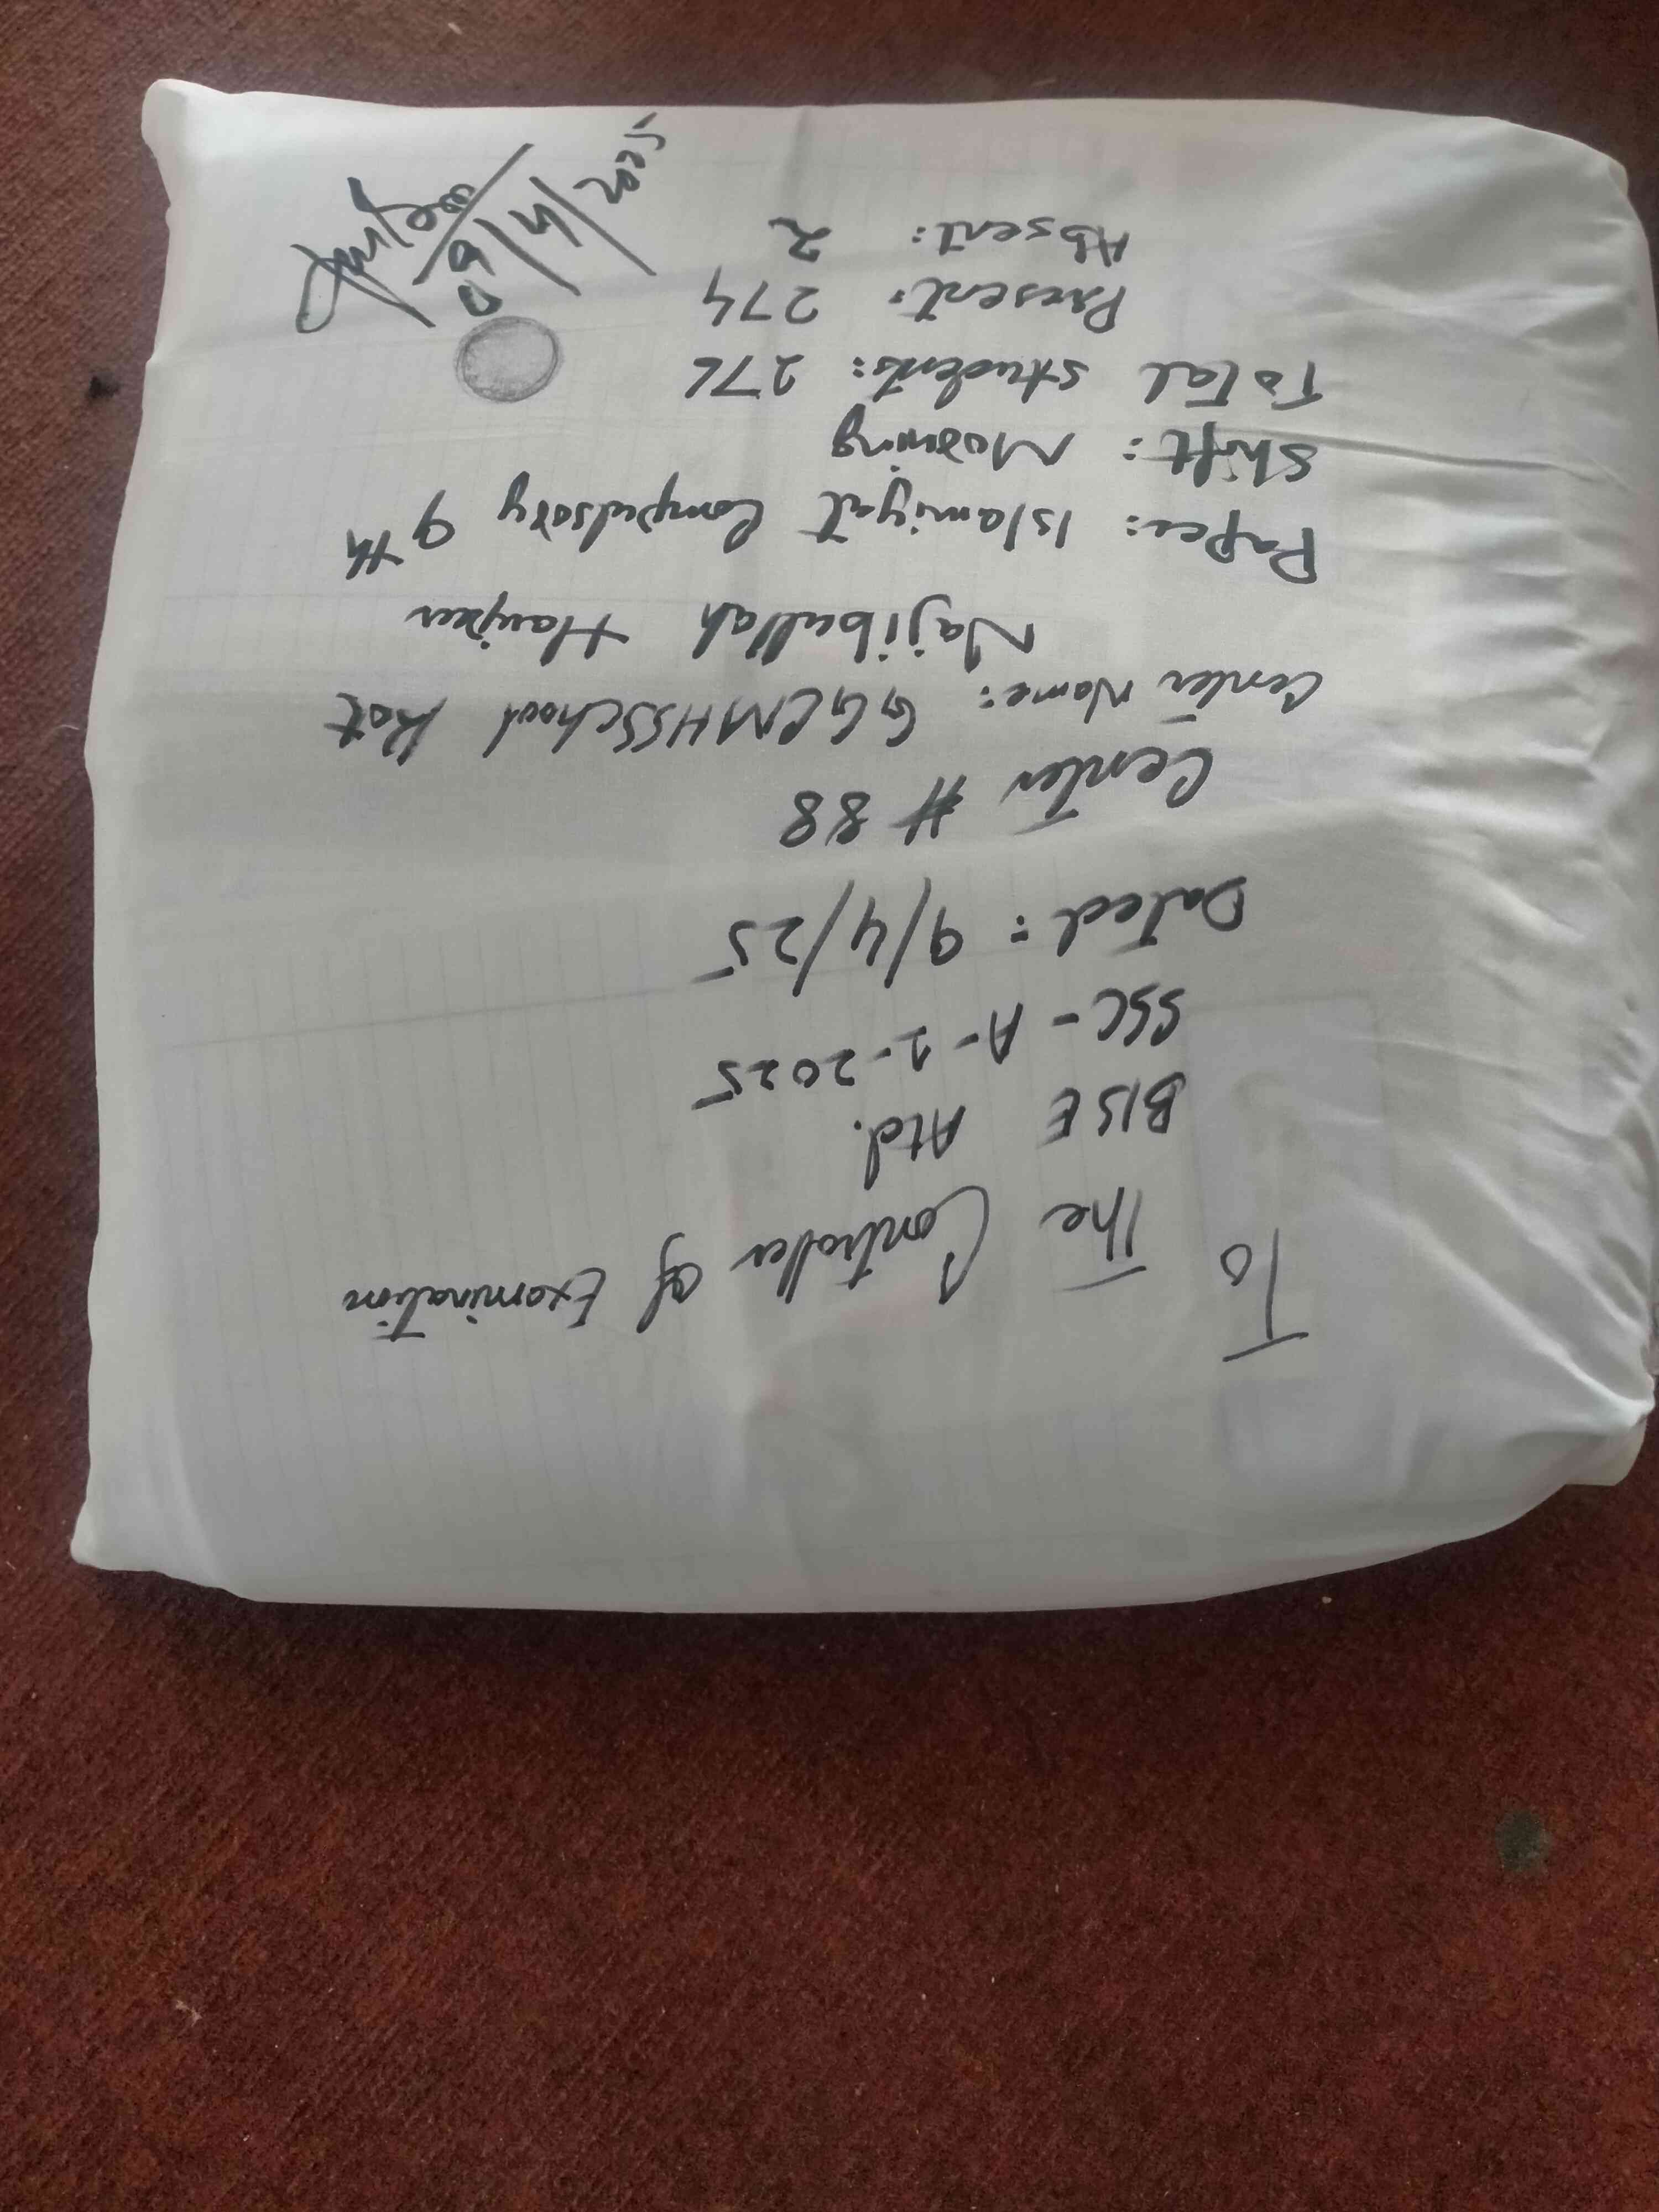 To
The Controller of Examination
BISE Atd.
SSC-A-1-2025
Dated: 9/4/25
Center # 88
Center Name: GGCMHSSchool Kot
Najibullah Haripur
Paper: Islamiyat Compulsory 9th
Shift: Morning
Total students: 276
Present: 274
Absent: 2
09/4/2025